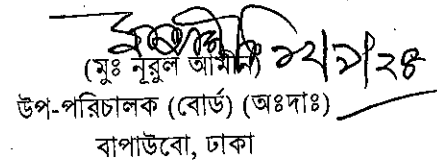 (মুঃ নূরুল আমীন)
উপ-পরিচালক (বোর্ড) (অঃদাঃ)
বাপাউবো, ঢাকা